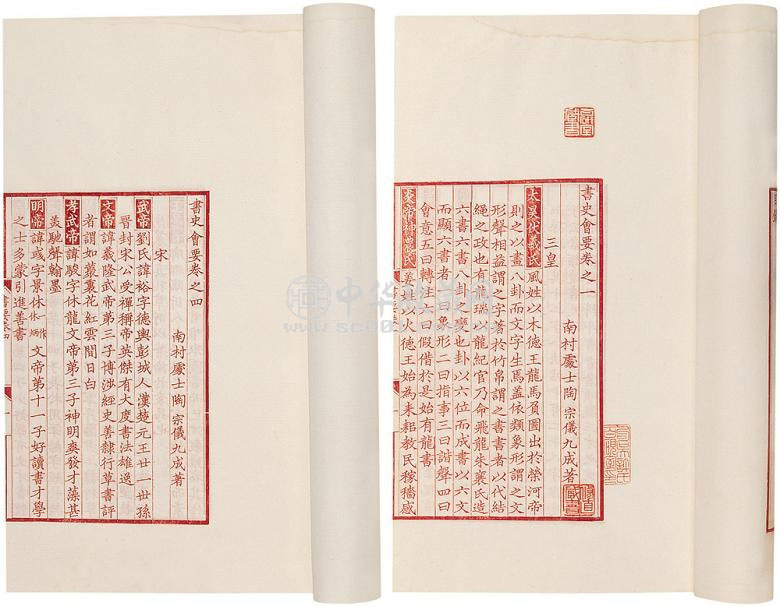 書史會要卷之一
南村處士陶宗儀九成著
三皇
太昊伏羲氏風姓以木德王龍馬負圖出於榮河帝
則之以畫八卦而文字生焉蓋依類象形謂之文
形聲相益謂之字著於竹帛謂之書書者以代結
繩之政也有龍瑞以龍紀官乃命飛龍朱襄氏造
六書六書八卦之變也卦以六位而成書以六文
而顯六書者一曰象形二曰指事三曰諧聲四曰
會意五曰轉注六曰假借於是始有龍書
炎帝神農氏姜姓以火德王始為耒耜教民稼穡感
書史會要卷之四
南村處士陶宗儀九成著
宋
武帝劉氏諱裕字德輿彭城人漢楚元王廿一世孫
晉封宋公受禪稱帝英傑有大度書法雄逸
文帝諱義隆武帝第三子博涉經史善隸行草書評
者謂如葵裹花紅雲間日白
孝武帝諱駿字休龍文帝第三子神明爽發才藻甚
美馳聲翰墨
明帝諱彧字景休休作炳文帝第十一子好讀書才學
之士多蒙引進善書